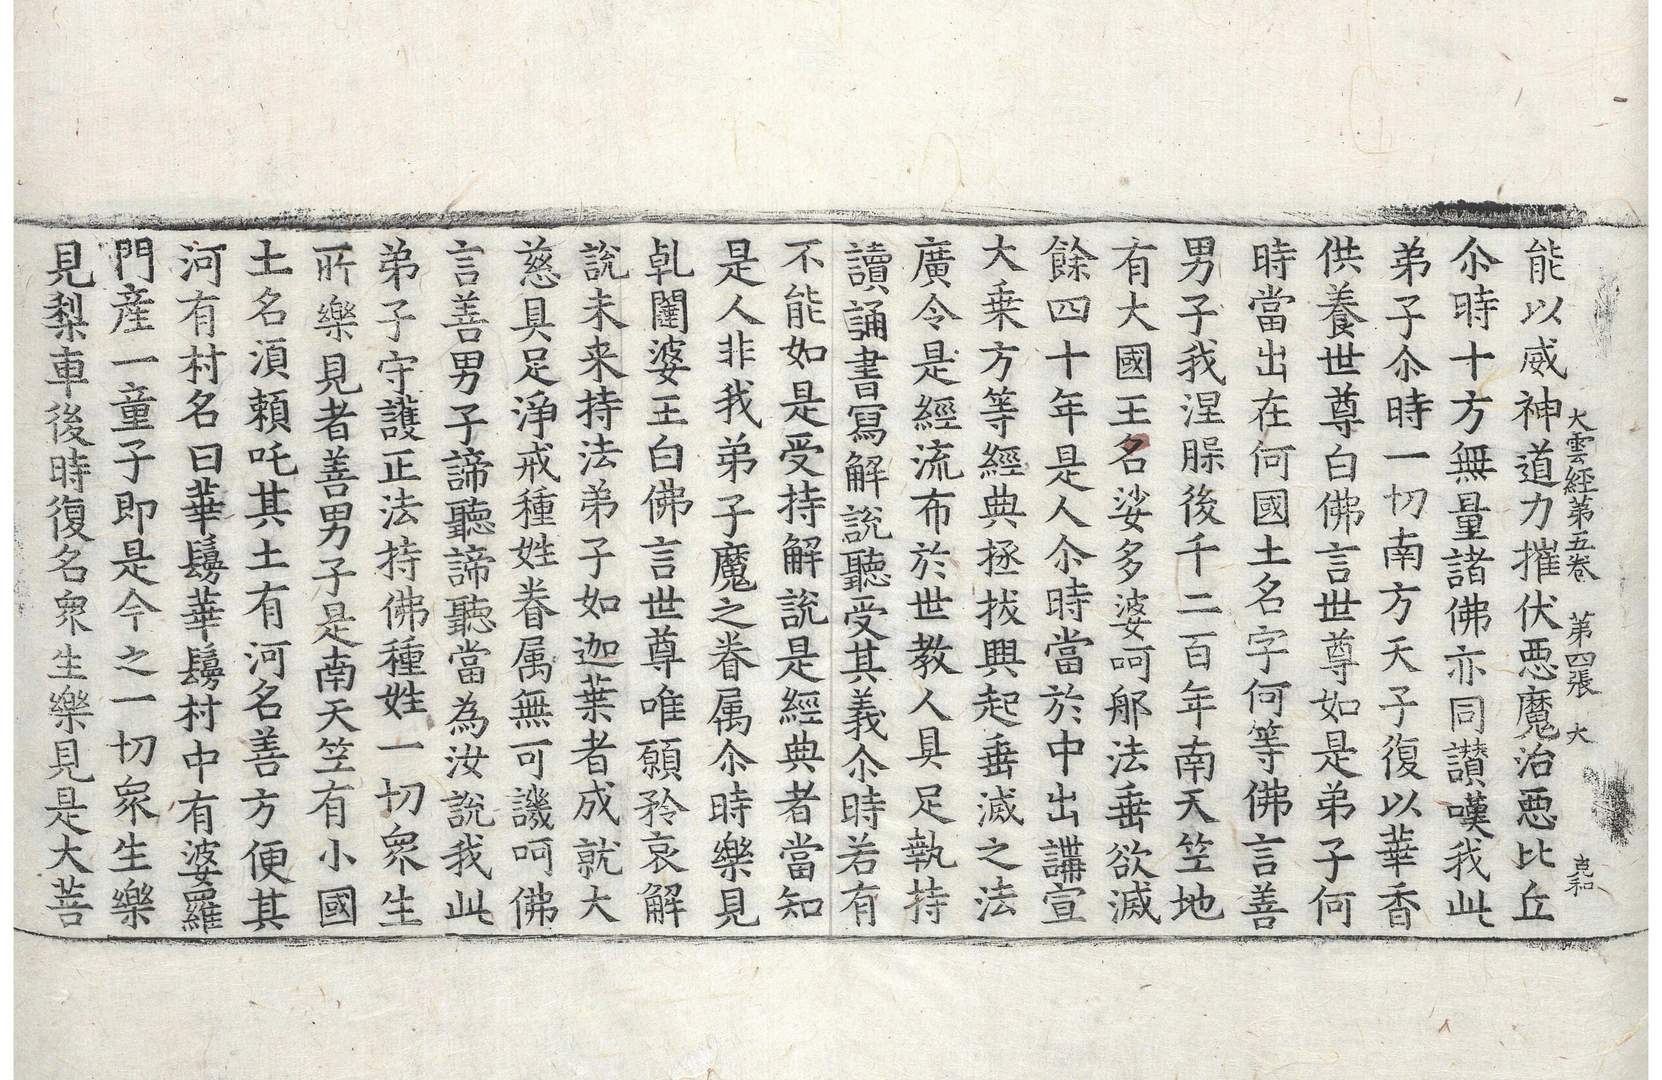 大雲経苐五卷　苐四張　大　克和
能以威神道力摧伏惡魔治惡比丘
尒時十方無量諸佛亦同讃嘆我此
弟子尒時一切南方天子復以華香
供養世尊白佛言世尊如是弟子何
時當出在何國土名字何等佛言善
男子我涅槃後千二百年南天竺地
有大國王名娑多婆呵那法垂欲滅
餘四十年是人尒時當於中出講宣
大乗方等經典拯拔興起垂滅之法
廣令是經流布於世教人具足執持
讀誦書寫解說聽受其義尒時若有
不能如是受持解說是經典者當知
是人非我弟子魔之眷属尒時樂見
乹闥婆王白佛言世尊唯願矜哀解
說未来持法弟子如迦葉者成就大
慈具足淨戒種姓眷属無可譏呵佛
言善男子諦聽諦聽當為汝說我此
弟子守護正法持佛種姓一切衆生
所樂見者善男子是南天竺有小國
土名湏頼吒其土有河名善方便其
河有村名曰華鬘華鬘村中有婆羅
門産一童子即是今之一切衆生樂
見梨車後時復名衆生樂見是大菩